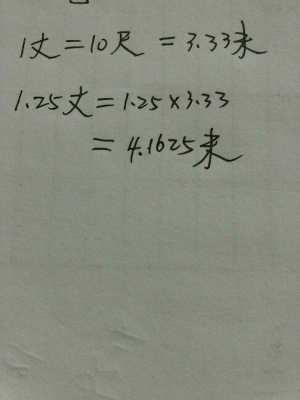 1丈=10尺=3.33米
1.25丈=1.25×3.33
=4.1625米